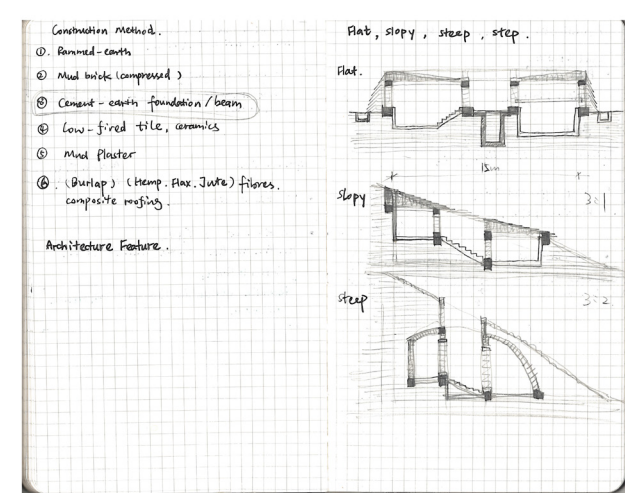 Construction Method.
①. Rammed-earth
② Mud brick (compressed)
③ Cement-earth foundation/beam
④ Low-fired tile, ceramics
⑤ Mud Plaster
⑥. (Burlap) (Hemp. Flax. Jute) fibres.
composite roofing.
Architecture Feature.
Flat, slopy, steep, step.
Flat.
15m
slopy
3:1
steep
3:2